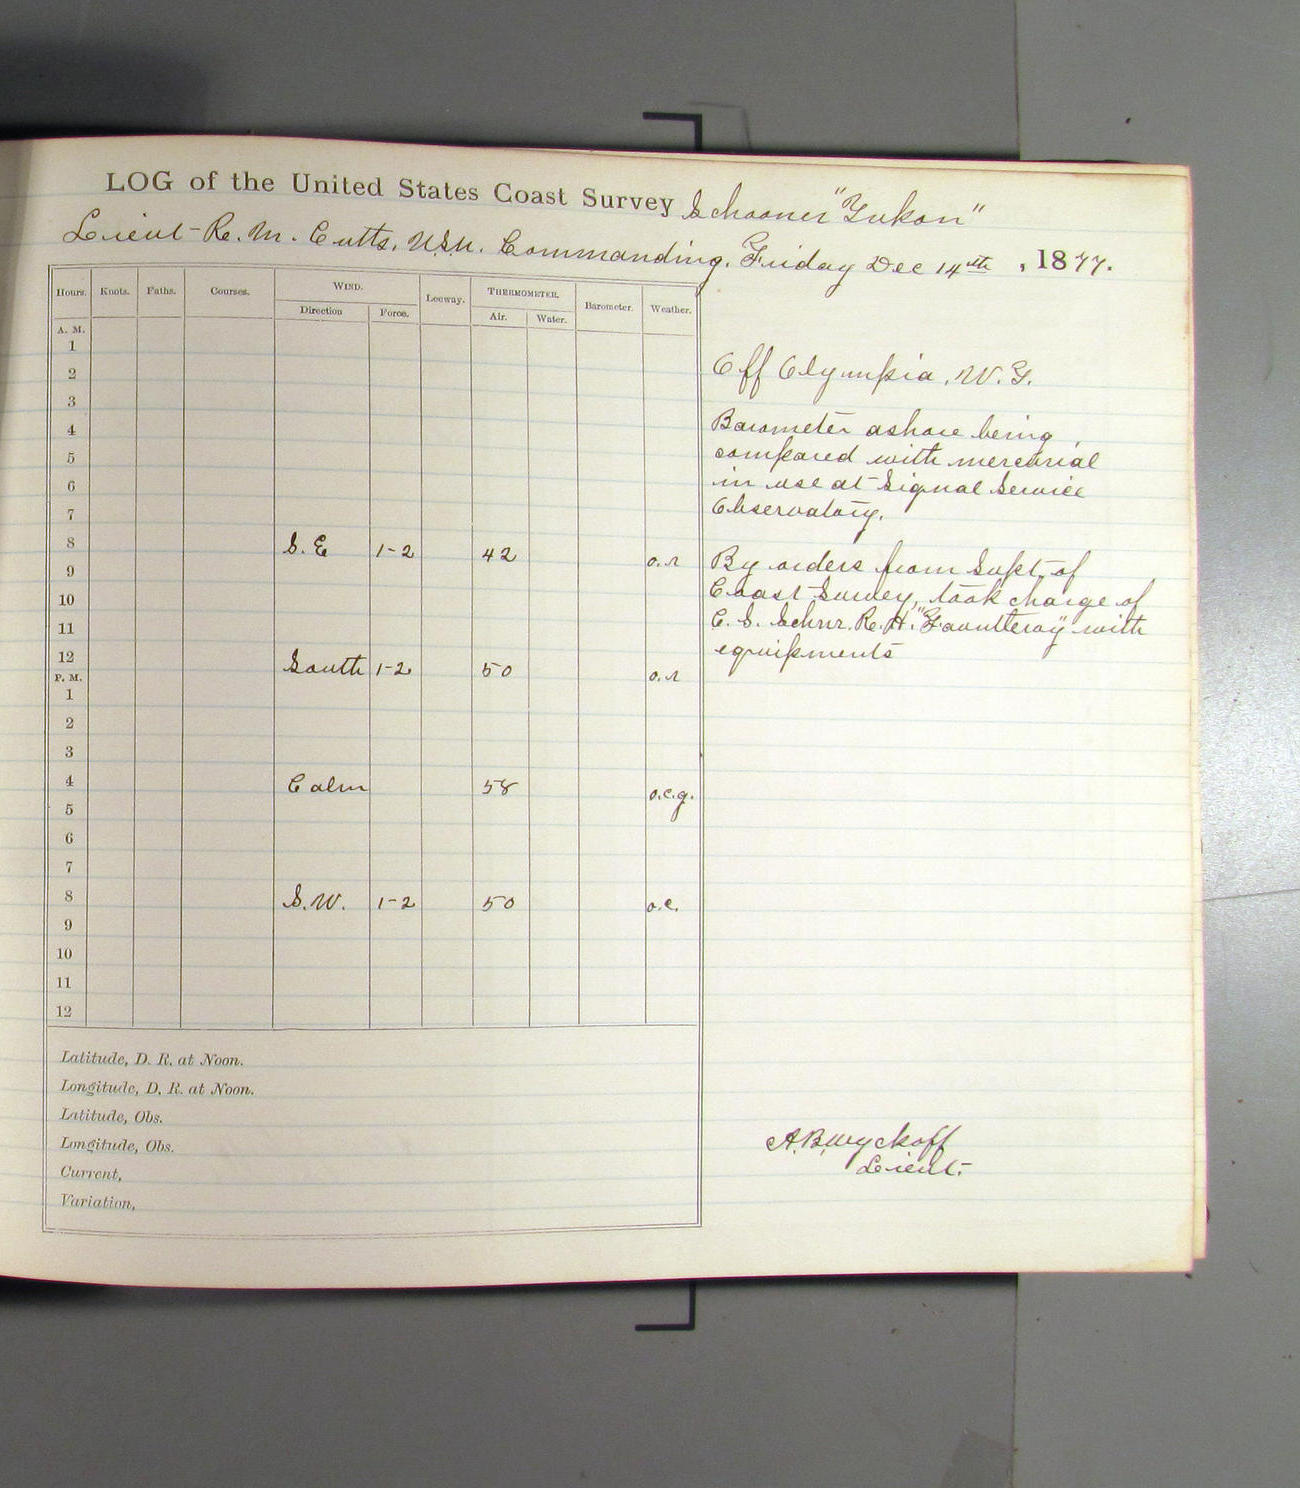 LOG of the United States Coast Survey Schooner "Yukon"
Lieut R. M. Cutts, U.S.N. Commanding, Friday Dec 14th, 1877.
Hours. Knots. Faths. Courses. WIND. Leeway. THERMOMETER. Barometer. Weather.
Direction Force. Air. Water.
A. M.
1
2
3
4
5
6
7
8 S.E 1-2 42 o.r
9
10
11
12 South 1-2 50 o.r
P. M.
1
2
3
4 Calm 58 o.c.g.
5
6
7
8 S.W. 1-2 50 o.c.
9
10
11
12
Latitude, D. R. at Noon.
Longitude, D. R. at Noon.
Latitude, Obs.
Longitude, Obs.
Current,
Variation,
Off Olympia, W.T.
Barometer ashore being
compared with mercurial
in use at Signal Service
Observatory.
By orders from Supt. of
Coast Survey, took charge of
C. S. Schnr. R. H. "Fauntleroy" with
equipments
A. B. Wyckoff
Lieut.